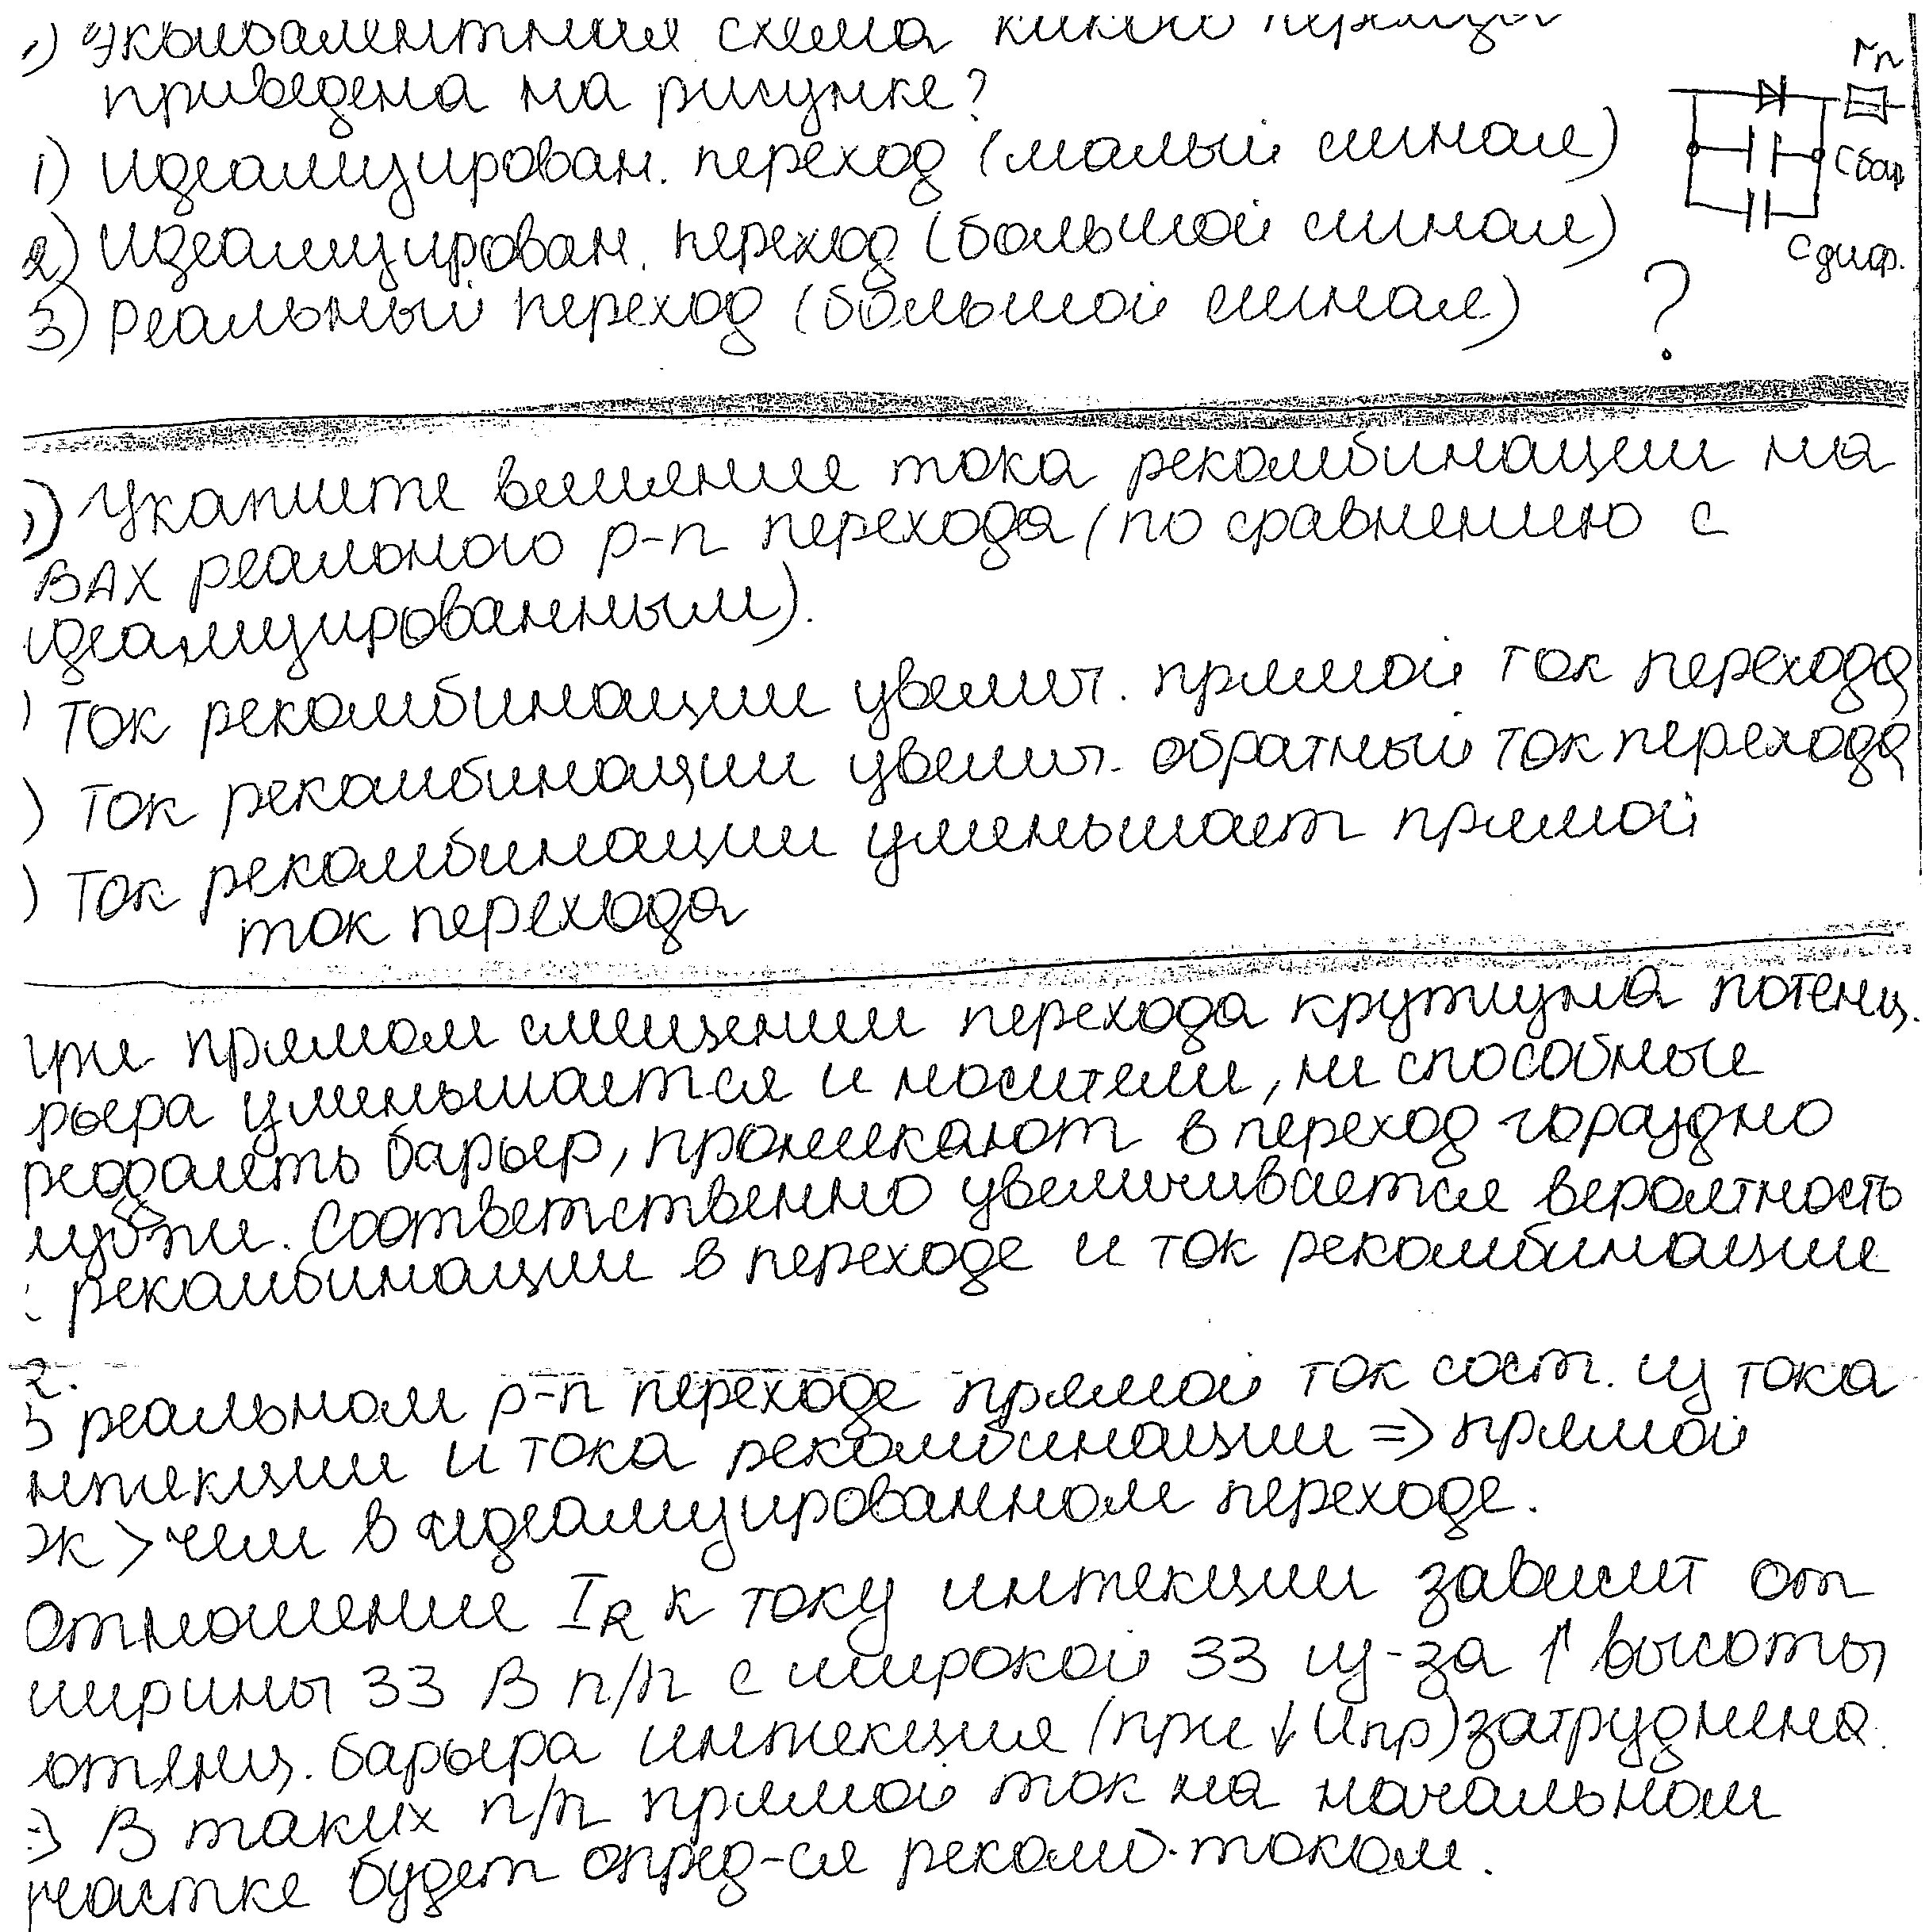 1) Эквивалентная схема какого перехода
приведена на рисунке?
1) Идеализирован. переход (малый сигнал)
2) Идеализирован. переход (большой сигнал)
3) Реальный переход (большой сигнал)
rп
Сбар
Сдиф.
?
) Укажите влияние тока рекомбинации на
ВАХ реального p-n перехода (по сравнению с
идеализированным).
) Ток рекомбинации увелич. прямой ток перехода
) Ток рекомбинации увелич. обратный ток перехода
) Ток рекомбинации уменьшает прямой
ток перехода
При прямом смещении перехода крутизна потенц.
рьера уменьшается и носители, не способные
реодолеть барьер, проникают в переход гораздно
лубже. Соответственно увеличивается вероятность
: рекомбинации в переходе и ток рекомбинации
2.
В реальном p-n переходе прямой ток сост. из тока
нжекции и тока рекомбинации => прямой
ок > чем в идеализированном переходе.
Отношение IR к току инжекции зависит от
ширины ЗЗ В п/п с широкой ЗЗ из-за ↑ высоты
отенц. барьера инжекция (при ↓ Uпр) затруднена.
=> В таких п/п прямой ток на начальном
участке будет опред-ся рекомб. током.